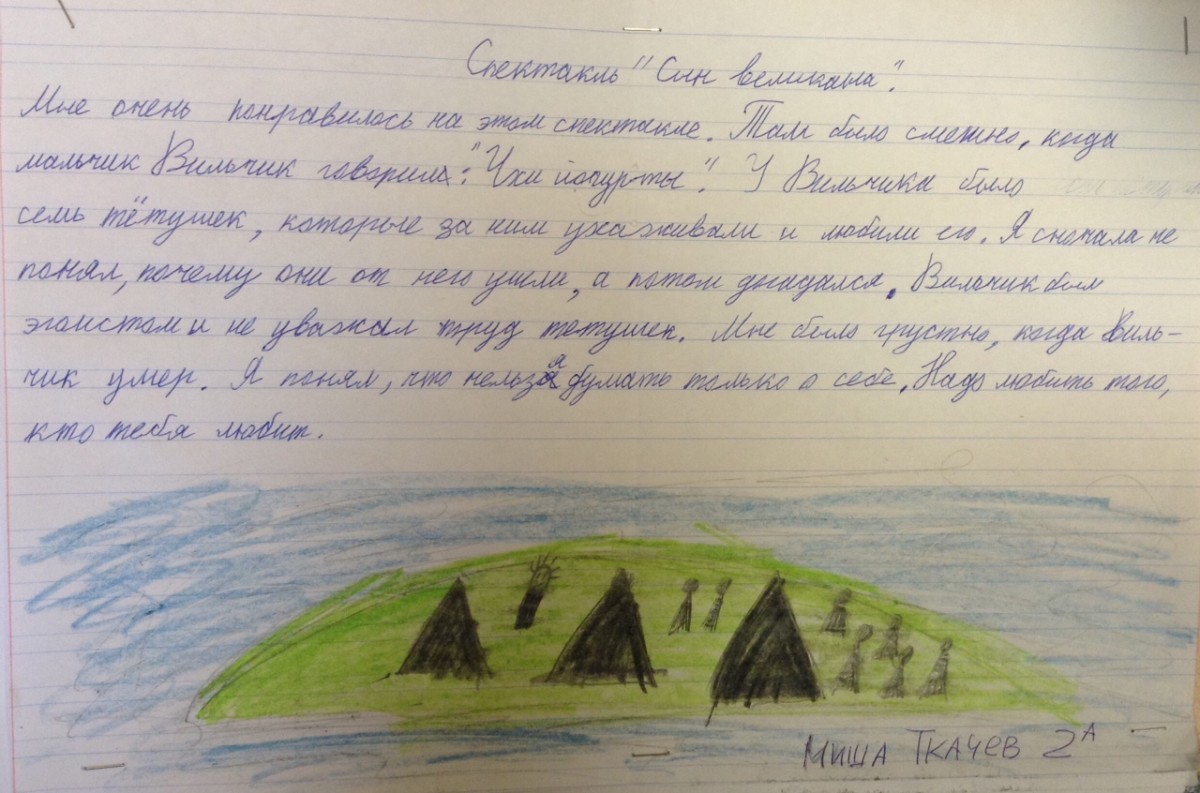 Спектакль "Сын великана".
Мне очень понравилось на этом спектакле. Там было смешно, когда
мальчик Вильчик говорил: "Ухи йогурты". У Вильчика было
семь тётушек, которые за ним ухаживали и любили его. Я сначала не
понял, почему они от него ушли, а потом догадался. Вильчик был
эгоистом и не уважал труд тётушек. Мне было грустно, когда Виль-
чик умер. Я понял, что нельзя думать только о себе. Надо любить того,
кто тебя любит.
МИША ТКАЧЕВ 2А